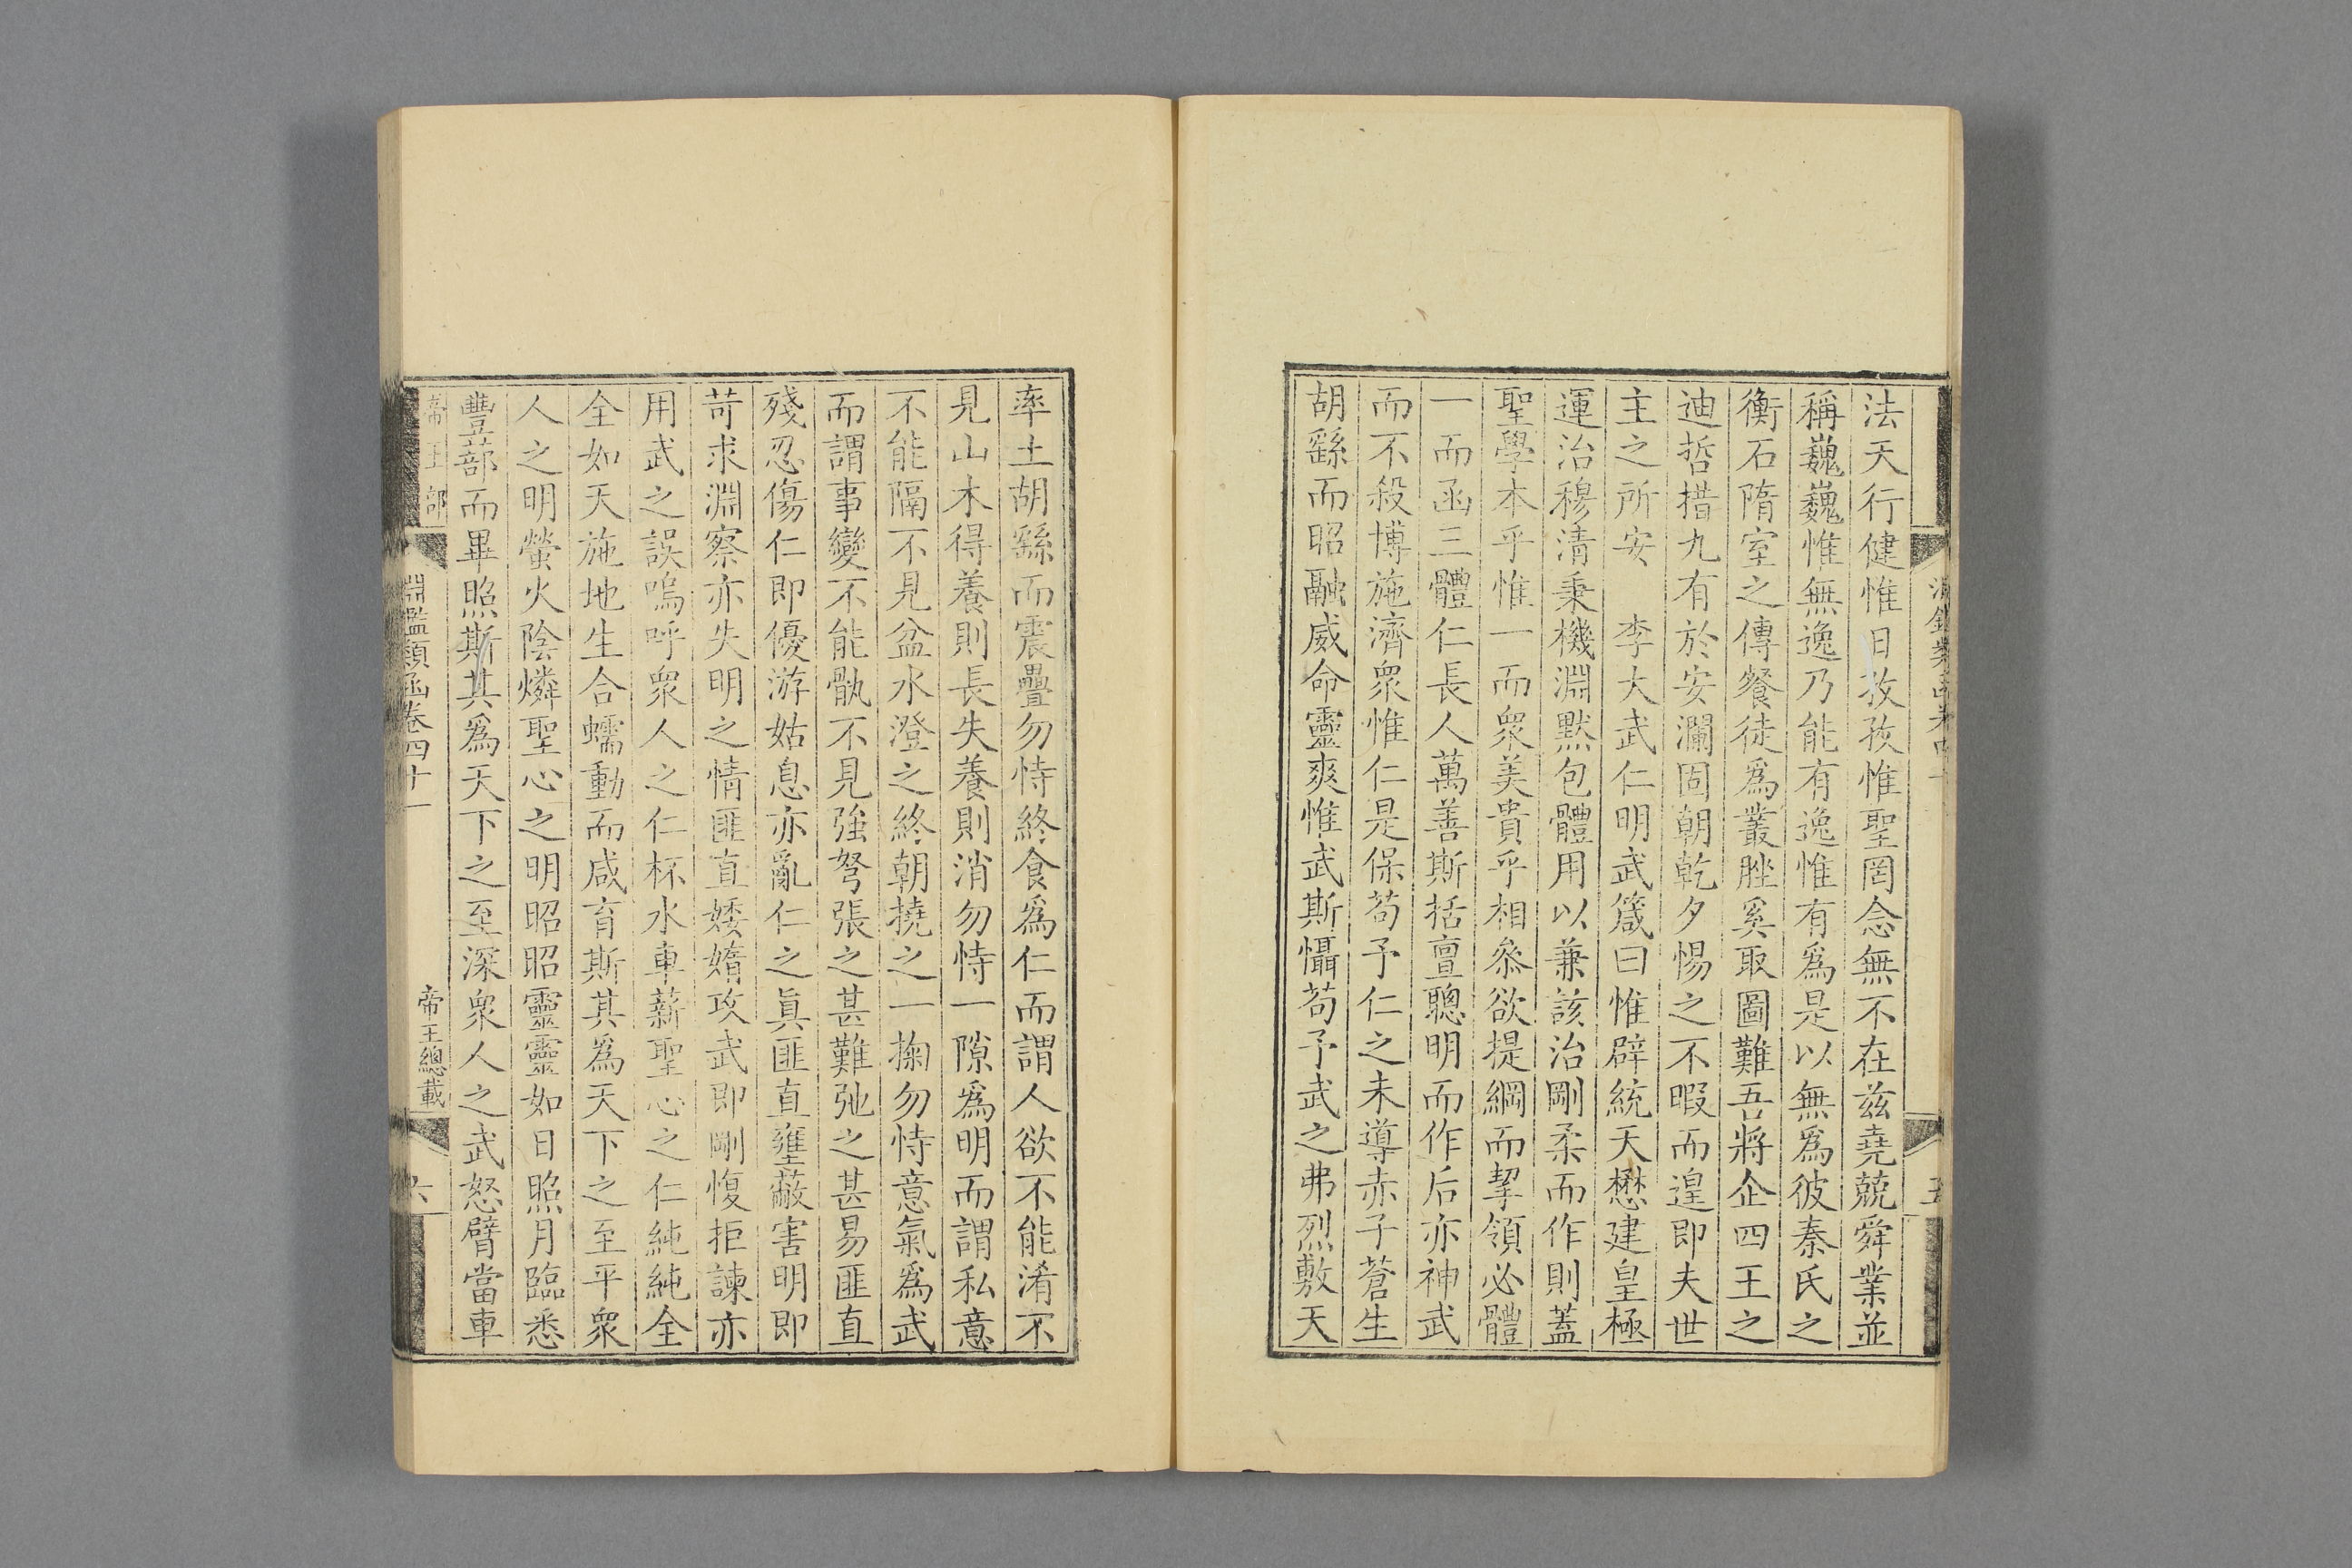 法天行健惟日孜孜惟聖罔念無不在兹堯兢舜業並
稱巍巍惟無逸乃能有逸惟有為是以無為彼秦氏之
衡石隋室之傳餐徒為叢脞奚取圖難吾將企四王之
迪哲措九有於安瀾固朝乾夕惕之不暇而遑即夫世
主之所安　李大武仁明武箴曰惟辟統天懋建皇極
運治穆清秉機淵默包體用以兼該治剛柔而作則蓋
聖學本乎惟一而衆美貴乎相叅欲提綱而挈領必體
一而函三體仁長人萬善斯括亶聰明而作后亦神武
而不殺博施濟衆惟仁是保苟予仁之未導赤子蒼生
胡繇而昭融威命靈爽惟武斯懾苟予武之弗烈敷天
率土胡繇而震疊勿恃終食為仁而謂人欲不能淆不
見山木得養則長失養則消勿恃一隙為明而謂私意
不能隔不見盆水澄之終朝撓之一掬勿恃意氣為武
而謂事變不能骩不見強弩張之甚難弛之甚易匪直
殘忍傷仁即優游姑息亦亂仁之眞匪直壅蔽害明即
苛求淵察亦失明之情匪直婑媠攻武即剛愎拒諫亦
用武之誤嗚呼衆人之仁杯水車薪聖心之仁純純全
全如天施地生合蠕動而咸育斯其為天下之至平衆
人之明螢火陰燐聖心之明昭昭靈靈如日照月臨悉
豐蔀而畢照斯其為天下之至深衆人之武怒臂當車
帝王部
淵鑑類函卷四十一
帝王總載
六